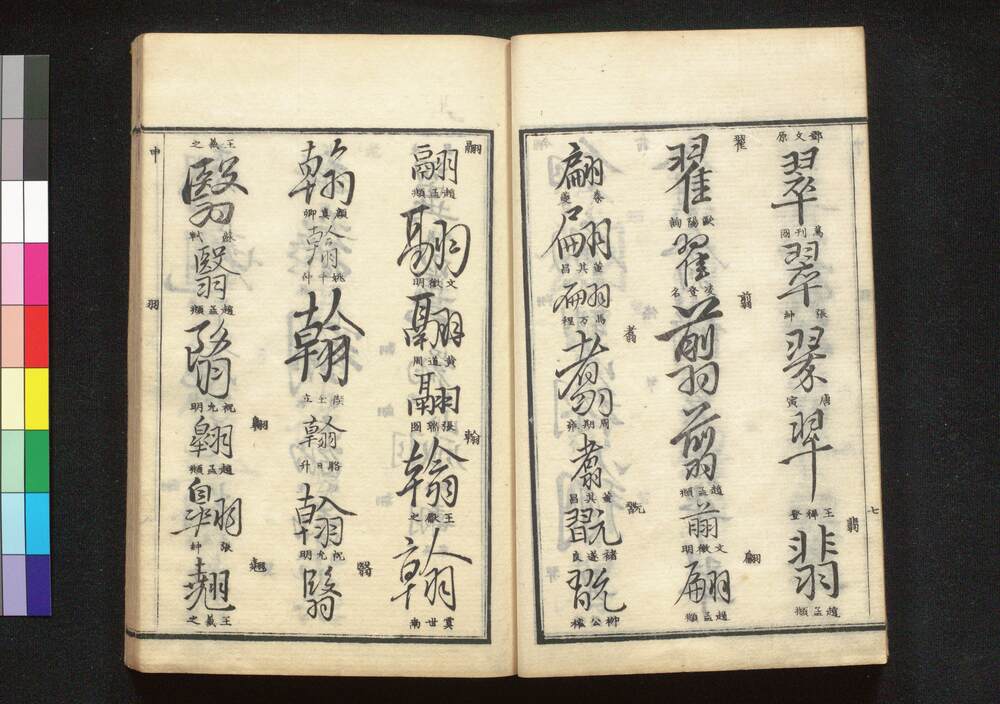 翠
鄧文原
翠
萬刋閣
翠
張紳
翠
唐寅
翡
翡
王穉登
趙孟頫
翟
翟
歐陽詢
翟
凌登名
翦
翦
翦
趙孟頫
翦
文徵明
翩
翩
趙孟頫
翩
蔡襄
翩
董其昌
翩
萬万程
翥
翥
周期雍
翥
董其昌
翫
翫
褚遂良
翫
柳公權
七
翮
翮
趙孟頫
翮
文徵明
翮
黄道周
翮
張瑞圖
翰
翰
王獻之
翰
虞世南
翰
顔真卿
翰
姚平仲
翰
翰
駱日升
翰
祝允明
翳
翳
翳
王羲之
翳
蘇軾
翳
趙孟頫
祝允明
翱
翱
趙孟頫
翱
張紳
翹
翹
王羲之
申
羽